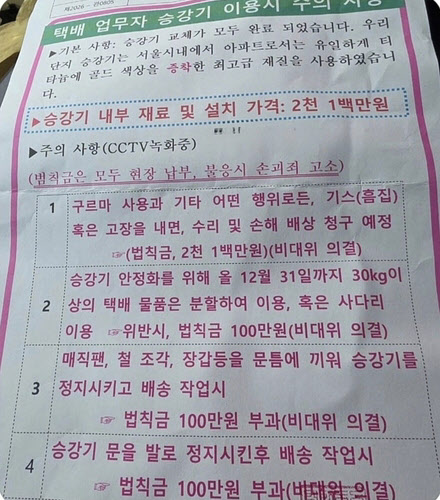 택배 업무자 승강기 이용시 주의 사항
▶기본 사항: 승강기 교체가 모두 완료 되었습니다. 우리
단지 승강기는 서울시내에서 아파트로서는 유일하게 티
타늄에 골드 색상을 증착한 최고급 재질을 사용하였습니
다.
▶승강기 내부 재료 및 설치 가격: 2천 1백만원
▶주의 사항(CCTV녹화중)
(범칙금은 모두 현장 납부, 불응시 손괴죄 고소)
1 구르마 사용과 기타 어떤 행위로든, 기스(흠집)
혹은 고장을 내면, 수리 및 손해 배상 청구 예정
☞(법칙금, 2천 1백만원)(비대위 의결)
2 승강기 안정화를 위해 올 12월 31일까지 30kg이
상의 택배 물품은 분할하여 이용, 혹은 사다리
이용 ☞위반시, 법칙금 100만원(비대위 의결)
3 매직팬, 철 조각, 장갑등을 문틈에 끼워 승강기를
정지시키고 배송 작업시
☞ 법칙금 100만원 부과(비대위 의결)
4 승강기 문을 발로 정지시킨후 배송 작업시
☞ 법칙금 100만원 부과(비대위 의결)